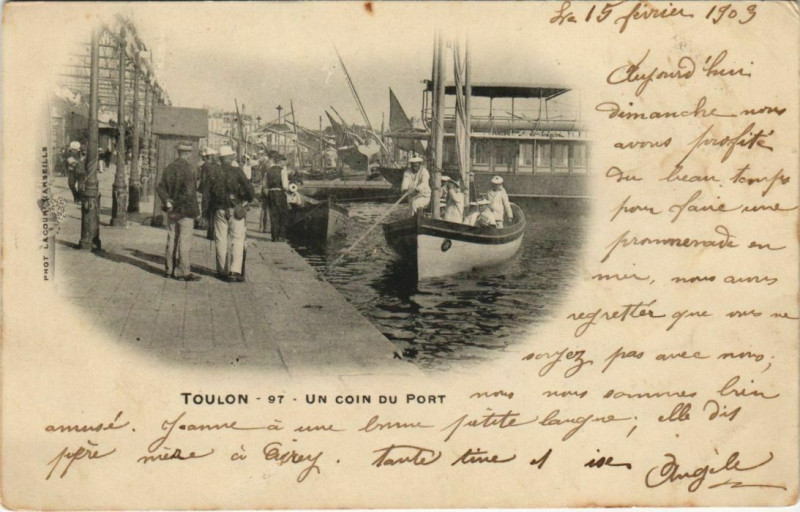 Le 15 février 1903
Aujourd'hui
dimanche nous
avons profité
du beau temps
pour faire une
promenade en
mer, nous avons
regretter que vous ne
soyez pas avec nous;
nous nous sommes bien
amusé. Jeanne à une bonne petite langue, elle dis
père mère à
tante et
Angèle
PHOT LACOUR MARSEILLE
TOULON - 97 - UN COIN DU PORT